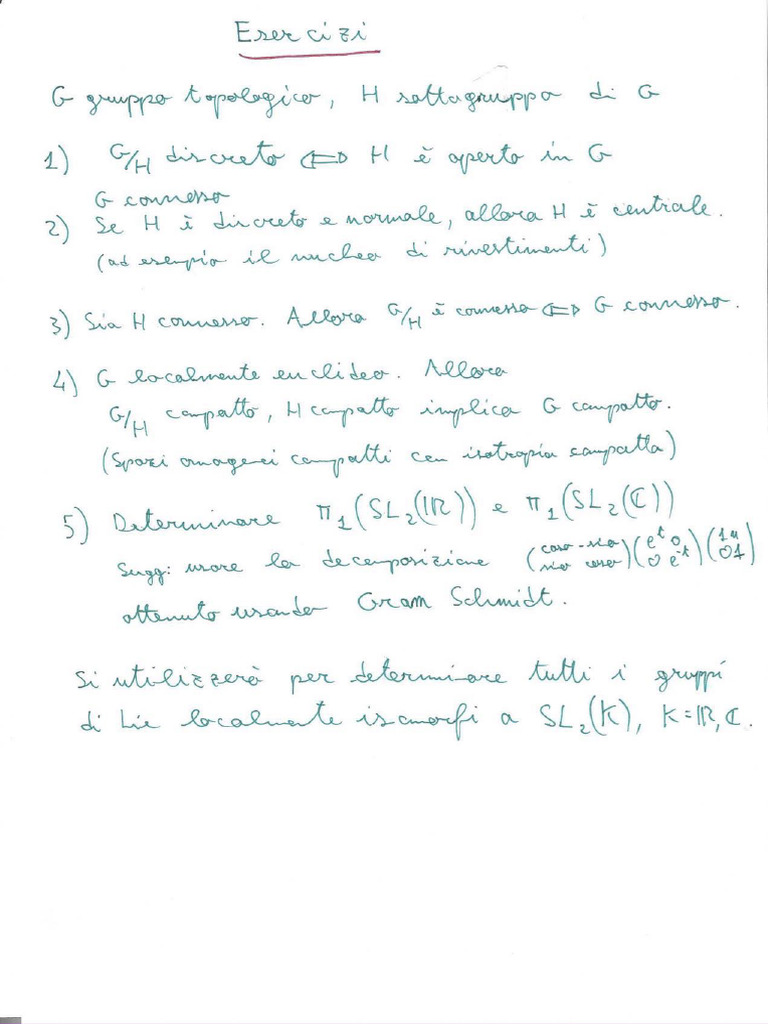 Esercizi
G gruppo topologico, H sottogruppo di G
1) G/H discreto ⇔ H è aperto in G
G connesso
2) Se H è discreto e normale, allora H è centrale.
(ad esempio il nucleo di rivestimenti)
3) Sia H connesso. Allora G/H è connesso ⇔ G connesso.
4) G localmente euclideo. Allora
G/H compatto, H compatto implica G compatto.
(Spazi omogenei compatti con isotropia compatta)
5) Determinare π₁(SL₂(ℝ)) e π₁(SL₂(ℂ))
Sugg: usare la decomposizione (cosσ -sinσ sinσ cosσ)(e^t 0 0 e^-t)(1 u 0 1)
ottenuto usando Gram Schmidt.
Si utilizzerà per determinare tutti i gruppi
di Lie localmente isomorfi a SL₂(K), K=ℝ,ℂ.